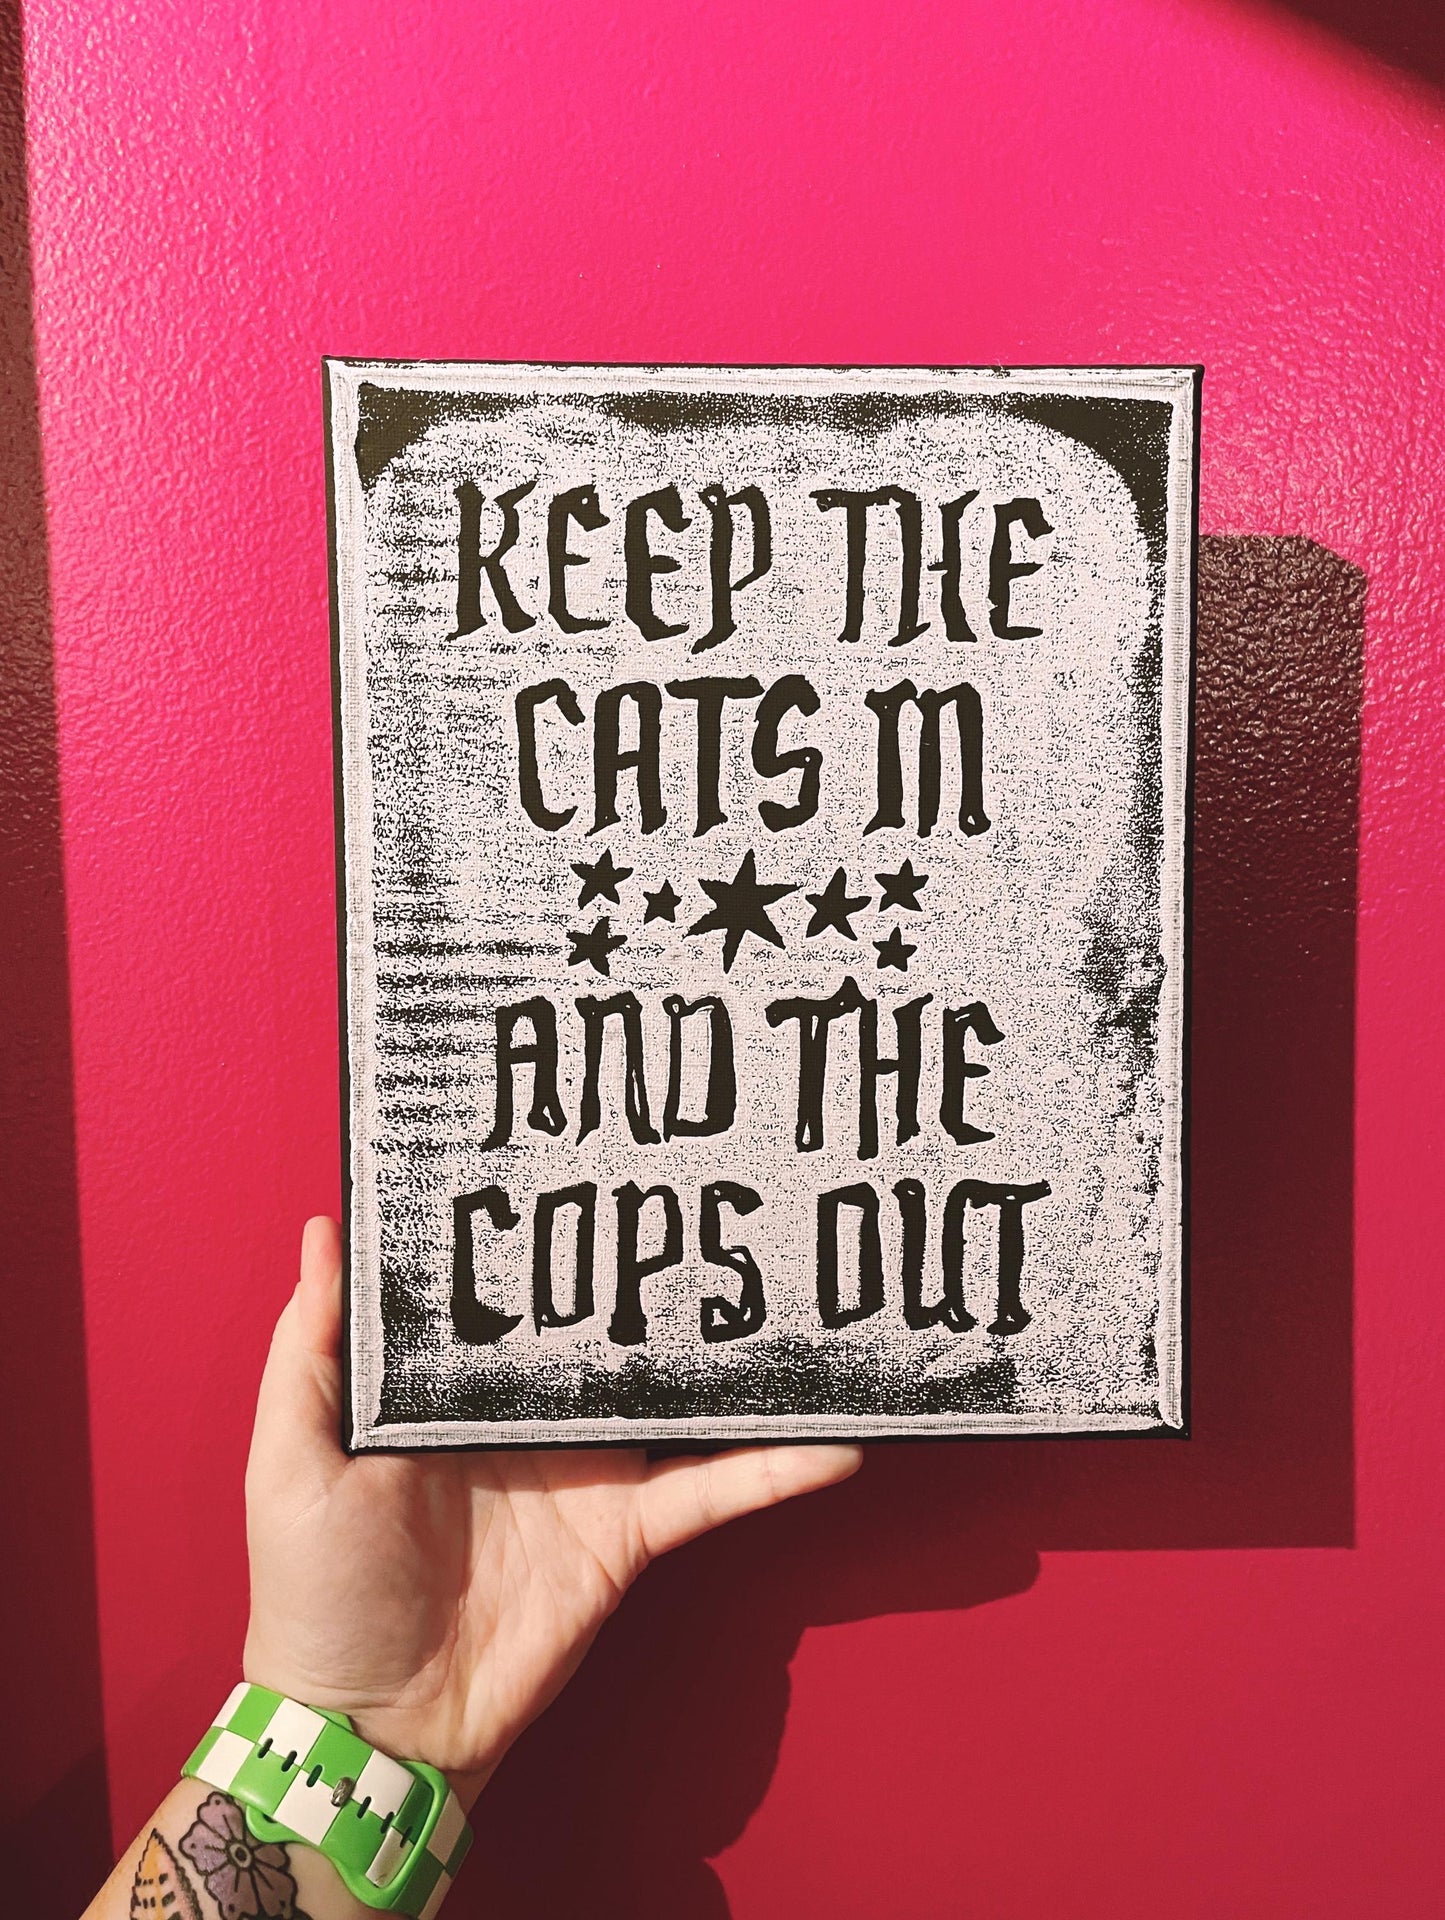 KEEP THE
CATS IN
AND THE
COPS OUT